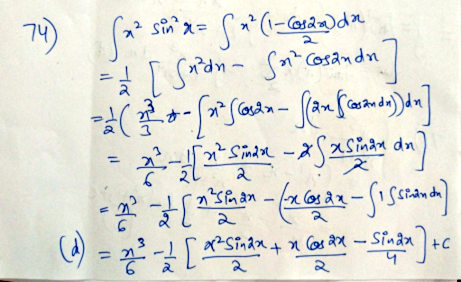 74) ∫x² sin²x = ∫ x² (1-Cos2x)dx / 2
= 1/2 [ ∫x²dx - ∫x² Cos2x dx ]
= 1/2 ( x³/3 - [x² ∫Cos2x - ∫(2x ∫Cos2x dx))dx ]
= x³/6 - 1/2 [ x² Sin2x / 2 - 2∫ x Sin2x / 2 dx ]
= x³/6 - 1/2 [ x² Sin2x / 2 - (-x Cos2x / 2 - ∫1 ∫Sin2x dx ]
(d) = x³/6 - 1/2 [ x² Sin2x / 2 + x Cos2x / 2 - Sin2x / 4 ] + C